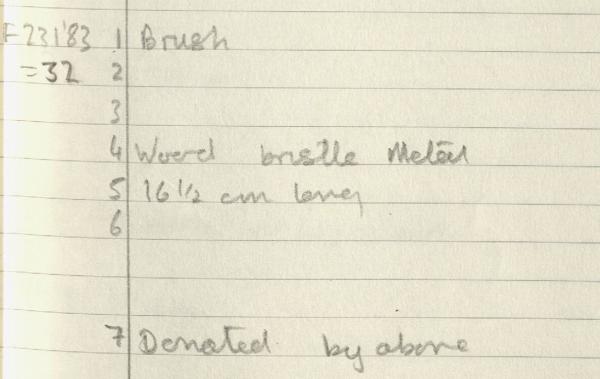 F231'83 1 Brush
=32 2
3
4 Wood bristle Metal
5 16 1/2 cm long
6
7 Donated by above